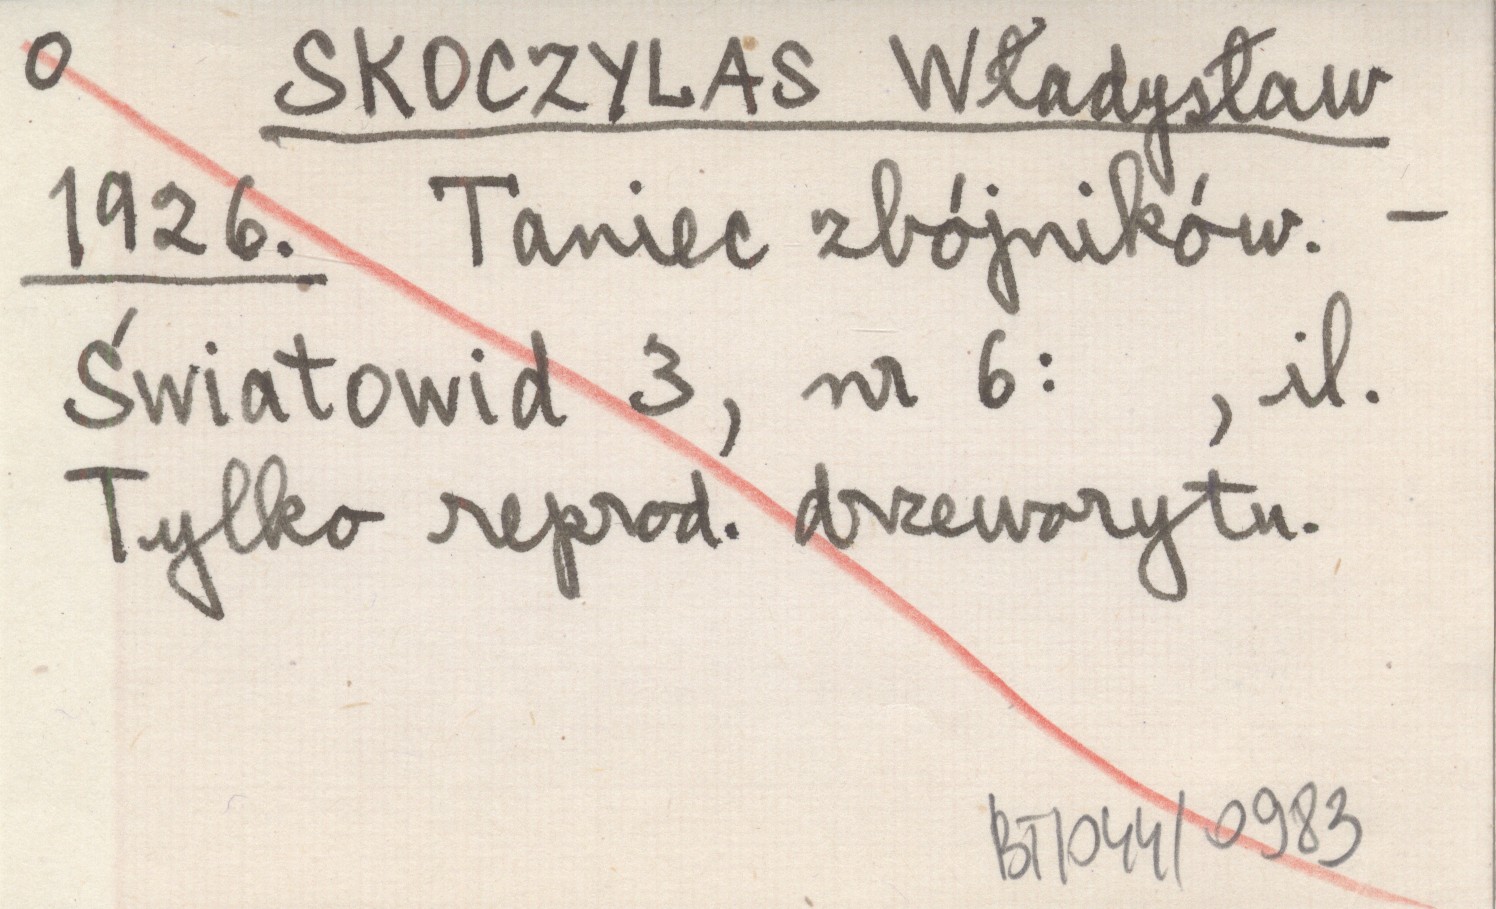 O SKOCZYLAS Władysław
1926. Taniec zbójników. –
Światowid 3, nr 6: , il.
Tylko reprod. drzeworytu.
BT/044/0983